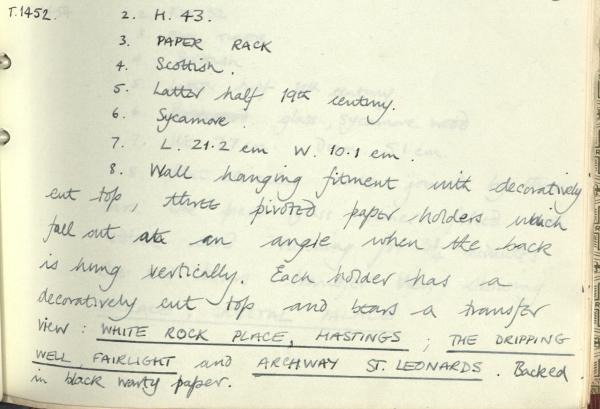 T.1452. 2. H. 43.
3. PAPER RACK
4. Scottish.
5. Latter half 19th century.
6. Sycamore.
7. L. 21.2 cm W. 10.1 cm.
8. Wall hanging fitment with decoratively
cut top, three pivoted paper holders which
fall out at an angle when the back
is hung vertically. Each holder has a
decoratively cut top and bears a transfer
view : WHITE ROCK PLACE, HASTINGS ; THE DRIPPING
WELL, FAIRLIGHT and ARCHWAY ST. LEONARDS. Backed
in black warty paper.